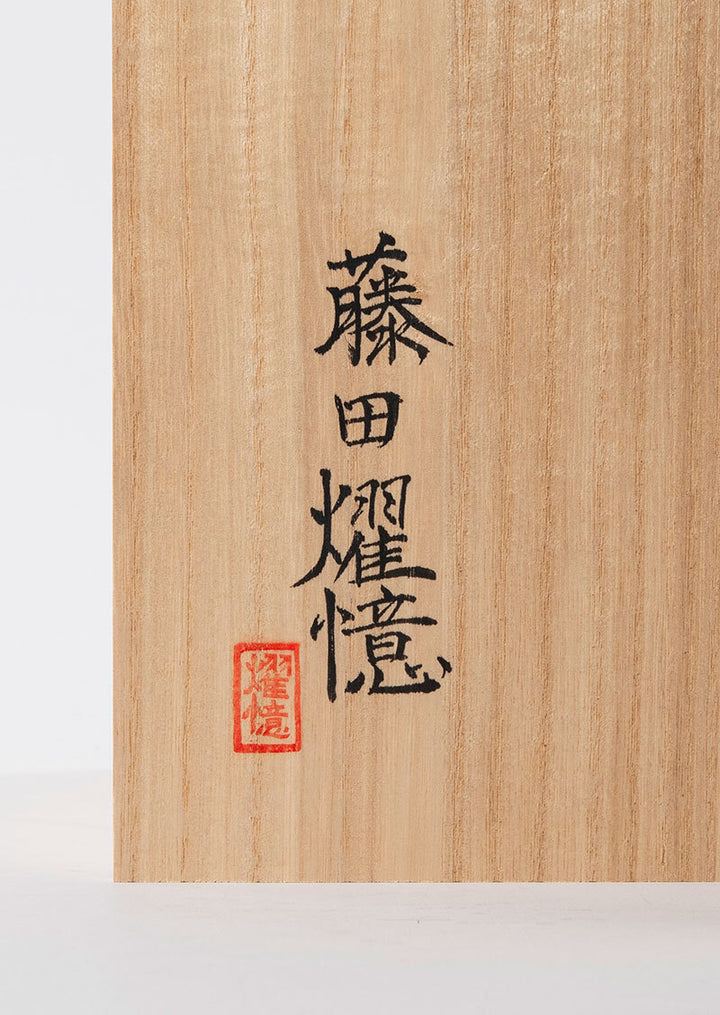 藤田燿憶
燿憶